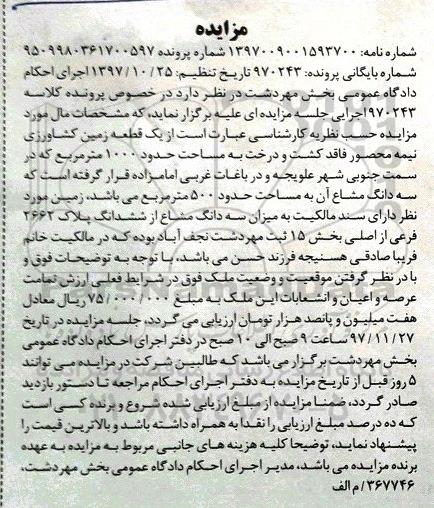 مزایده
شماره نامه: ۱۳۹۷۰۰۹۰۰۱۵۹۳۷۰۰ شماره پرونده ۹۵۰۹۹۸۰۳۶۱۷۰۰۵۹۷
شماره بایگانی پرونده: ۹۷۰۲۴۳ تاریخ تنظیم: ۱۳۹۷/۱۰/۲۵ اجرای احکام
دادگاه عمومی بخش مهردشت در نظر دارد در خصوص پرونده کلاسه
۹۷۰۲۴۳ اجرایی جلسه مزایده ای علیه برگزار نماید، که مشخصات مال مورد
مزایده حسب نظریه کارشناسی عبارت است از یک قطعه زمین کشاورزی
نیمه محصور فاقد کشت و درخت به مساحت حدود ۱۰۰۰ مترمربع که در
سمت جنوبی شهر علویجه و در باغات غربی امامزاده قرار گرفته است که
سه دانگ مشاع آن به مساحت حدود ۵۰۰ مترمربع می باشد، زمین مورد
نظر دارای سند مالکیت به میزان سه دانگ مشاع از ششدانگ پلاک ۲۶۶۲
فرعی از اصلی بخش ۱۵ ثبت مهردشت نجف آباد بوده که در مالکیت خانم
فریبا صادقی هسنیجه فرزند حسن می باشد، با توجه به توضیحات فوق و
با در نظر گرفتن موقعیت و وضعیت ملک فوق در شرایط فعلی ارزش تمامت
عرصه و اعیان و انشعابات این ملک به مبلغ ۷۵/۰۰۰/۰۰۰ ریال معادل
هفت میلیون و پانصد هزار تومان ارزیابی می گردد، جلسه مزایده در تاریخ
۹۷/۱۱/۲۷ ساعت ۹ صبح الی ۱۰ صبح در دفتر اجرای احکام دادگاه عمومی
بخش مهردشت برگزار می باشد که طالبین شرکت در مزایده می توانند
۵ روز قبل از تاریخ مزایده به دفتر اجرای احکام مراجعه تا دستور بازدید
صادر گردد، ضمنا مزایده از مبلغ ارزیابی شده شروع و برنده کسی است
که ده درصد مبلغ ارزیابی را نقدا به همراه داشته باشد و بالاترین قیمت را
پیشنهاد نماید، توضیحا کلیه هزینه های جانبی مربوط به مزایده به عهده
برنده مزایده می باشد، مدیر اجرای احکام دادگاه عمومی بخش مهردشت،
۳۶۷۷۴۶/م الف